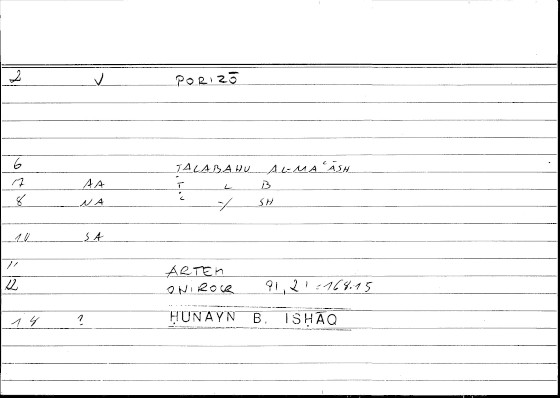 2 V PORIZŌ
6 ṬALABAHU AL-MAʿĀSH
7 AA Ṭ L B
8 NA ʿ -/ SH
10 SA
11 ARTEM
12 ONIROCR 91,21 = 168.15
14 ? ḤUNAYN B. ISḤĀQ